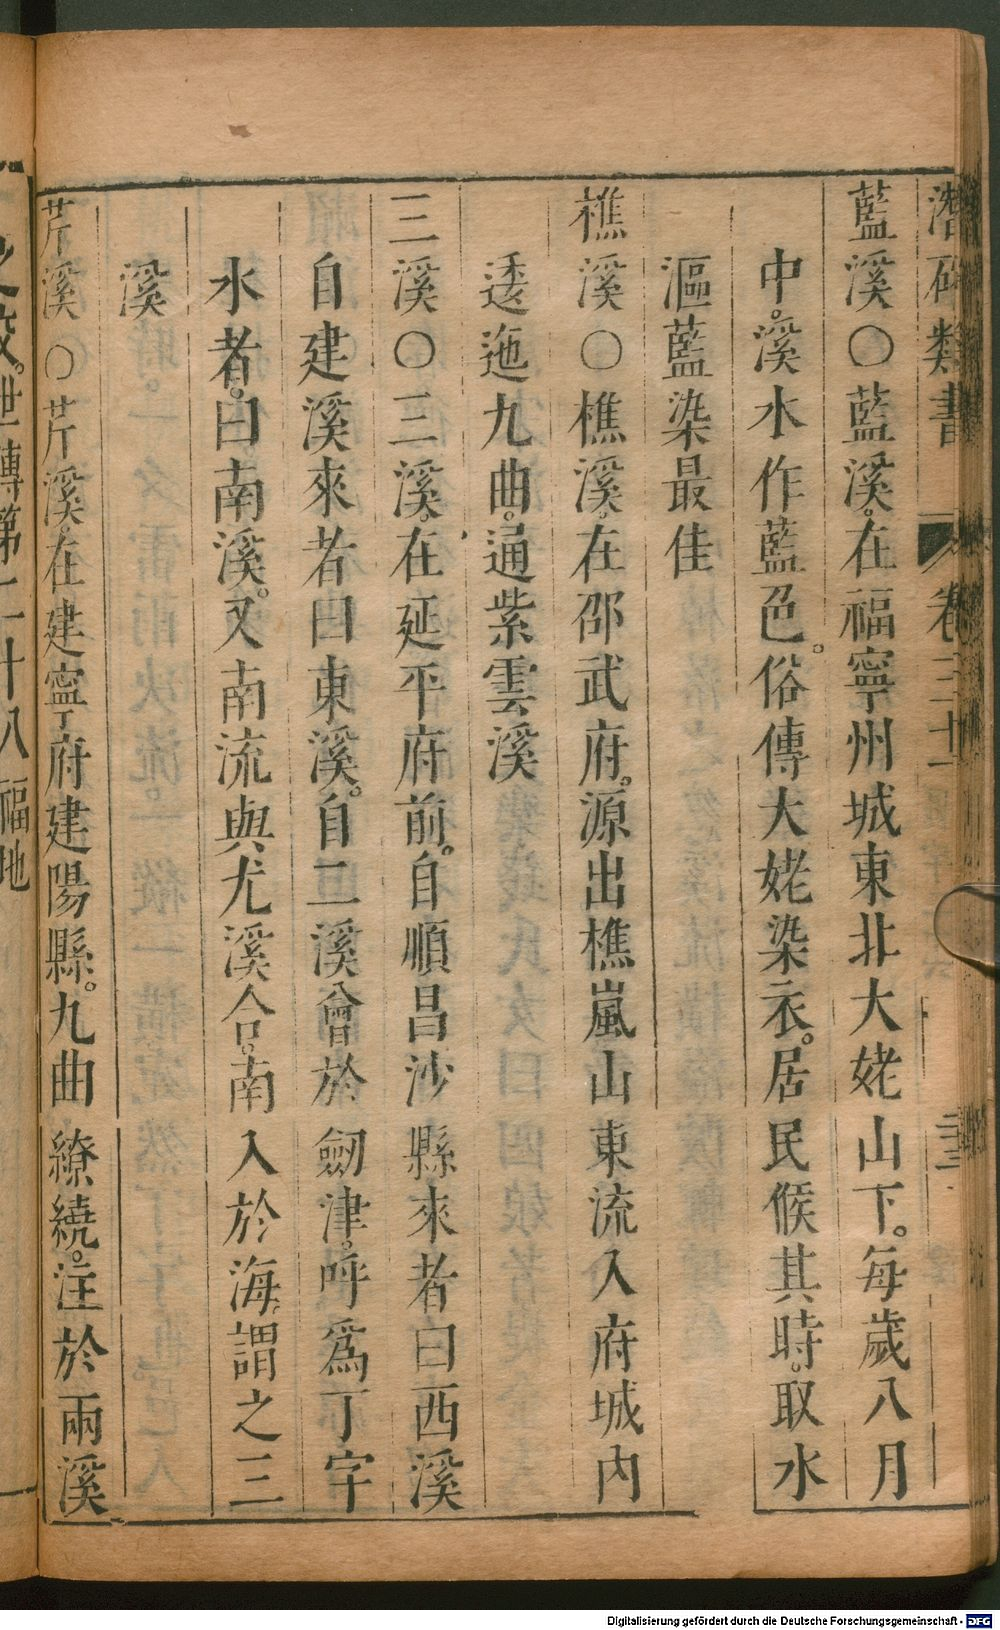 潛確類書 卷三十一 三
藍溪○藍溪。在福寧州城東北大姥山下。每歲八月
中。溪水作藍色。俗傳大姥染衣。居民候其時。取水
漚藍染最佳
樵溪○樵溪。在邵武府。源出樵嵐山東流入府城內
逶迤九曲。通紫雲溪
三溪○三溪。在延平府前。自順昌沙縣來者曰西溪
自建溪來者曰東溪。自二溪會於劒津。呼爲丁字
水者。曰南溪。又南流與尤溪合。南入於海。謂之三
溪
芹溪○芹溪。在建寧府建陽縣。九曲繚繞。注於兩溪
之。世傳第二十八福地
Digitalisierung gefördert durch die Deutsche Forschungsgemeinschaft - DFG